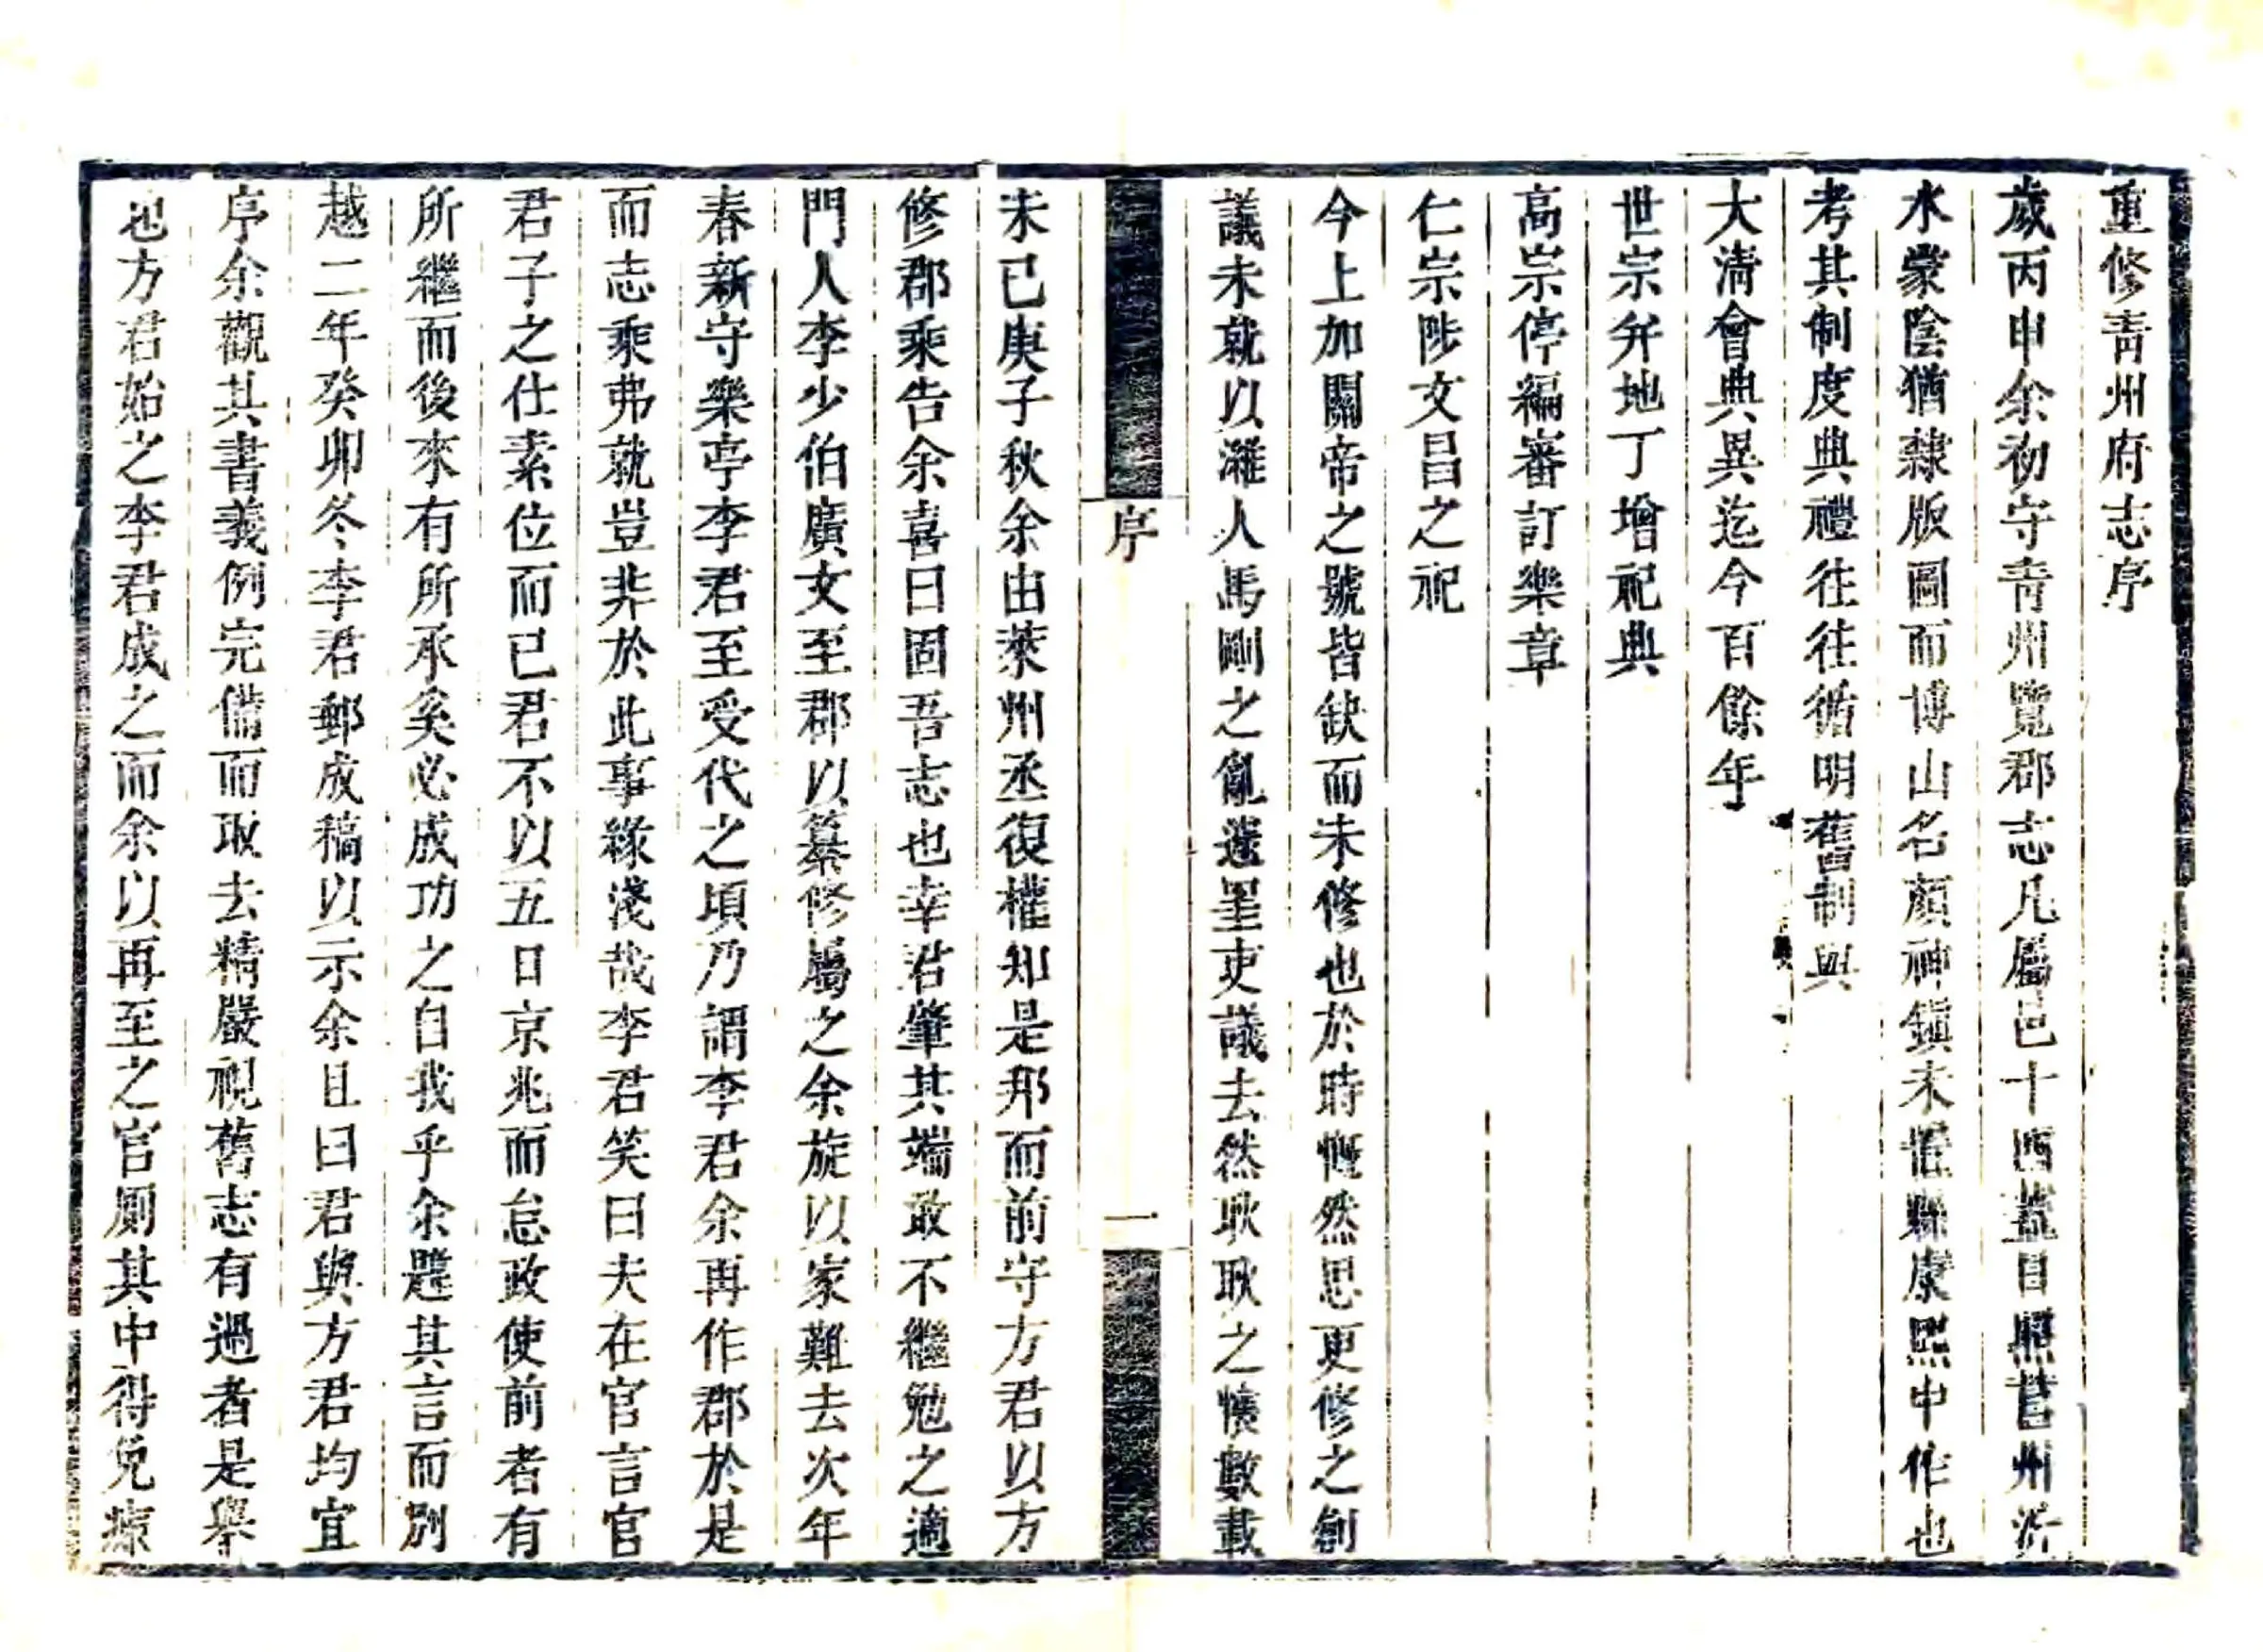 重修青州府志序
歲丙申余初守青州覽郡志凡屬邑十四葢日照莒州沂
水蒙陰猶隸版圖而博山名顏神鎮未置縣康熙中作也
考其制度典禮往往循明舊制與
大清會典異迄今百餘年
世宗幷地丁增祀典
高宗停編審訂樂章
仁宗陟文昌之祀
今上加關帝之號皆缺而未修也於時慨然思更修之創
議未就以濰人馬剛之亂違墨吏議去然耿耿之懷數載
序
一
未已庚子秋余由萊州丞復權知是邦而前守方君以方
修郡乘告余喜曰固吾志也幸君肇其端敢不繼勉之適
門人李少伯廣文至郡以纂修屬之余旋以家難去次年
春新守樂亭李君至受代之頃乃謂李君余再作郡於是
而志乘弗就豈非於此事緣淺哉李君笑曰夫在官言官
君子之仕素位而已君不以五日京兆而怠政使前者有
所繼而後來有所承奚必成功之自我乎余韙其言而別
越二年癸卯冬李君郵成稿以示余且曰君與方君均宜
序余觀其書義例完備而取去精嚴視舊志有過者是舉
也方君始之李君成之而余以再至之官厠其中得免瘝